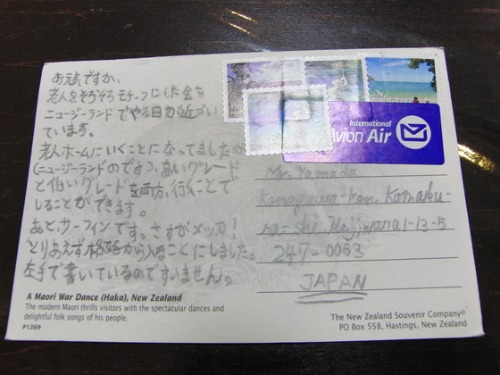 お元気ですか、
老人をそろそろモチーフにした会を
ニュージーランドでやる日が近づい
ています。
老人ホームにいくことになってましたが
(ニュージーランドのです)、高いグレード
と低いグレードを両方、行くことで
しることができます。
あと、サーフィンです。さすがメッカ!
とりあえず格好から入ることにしました。
左手で書いているのですいません。
A Maori War Dance (Haka), New Zealand
The modern Maori thrills visitors with the spectacular dances and
delightful folk songs of his people.
P1269
International
Air
Mr. Yamada
Kanagawa-ken. Kamaku-
ra-shi Kajiwara 1-13-5
247-0063
JAPAN
The New Zealand Souvenir Company©
PO Box 558, Hastings, New Zealand